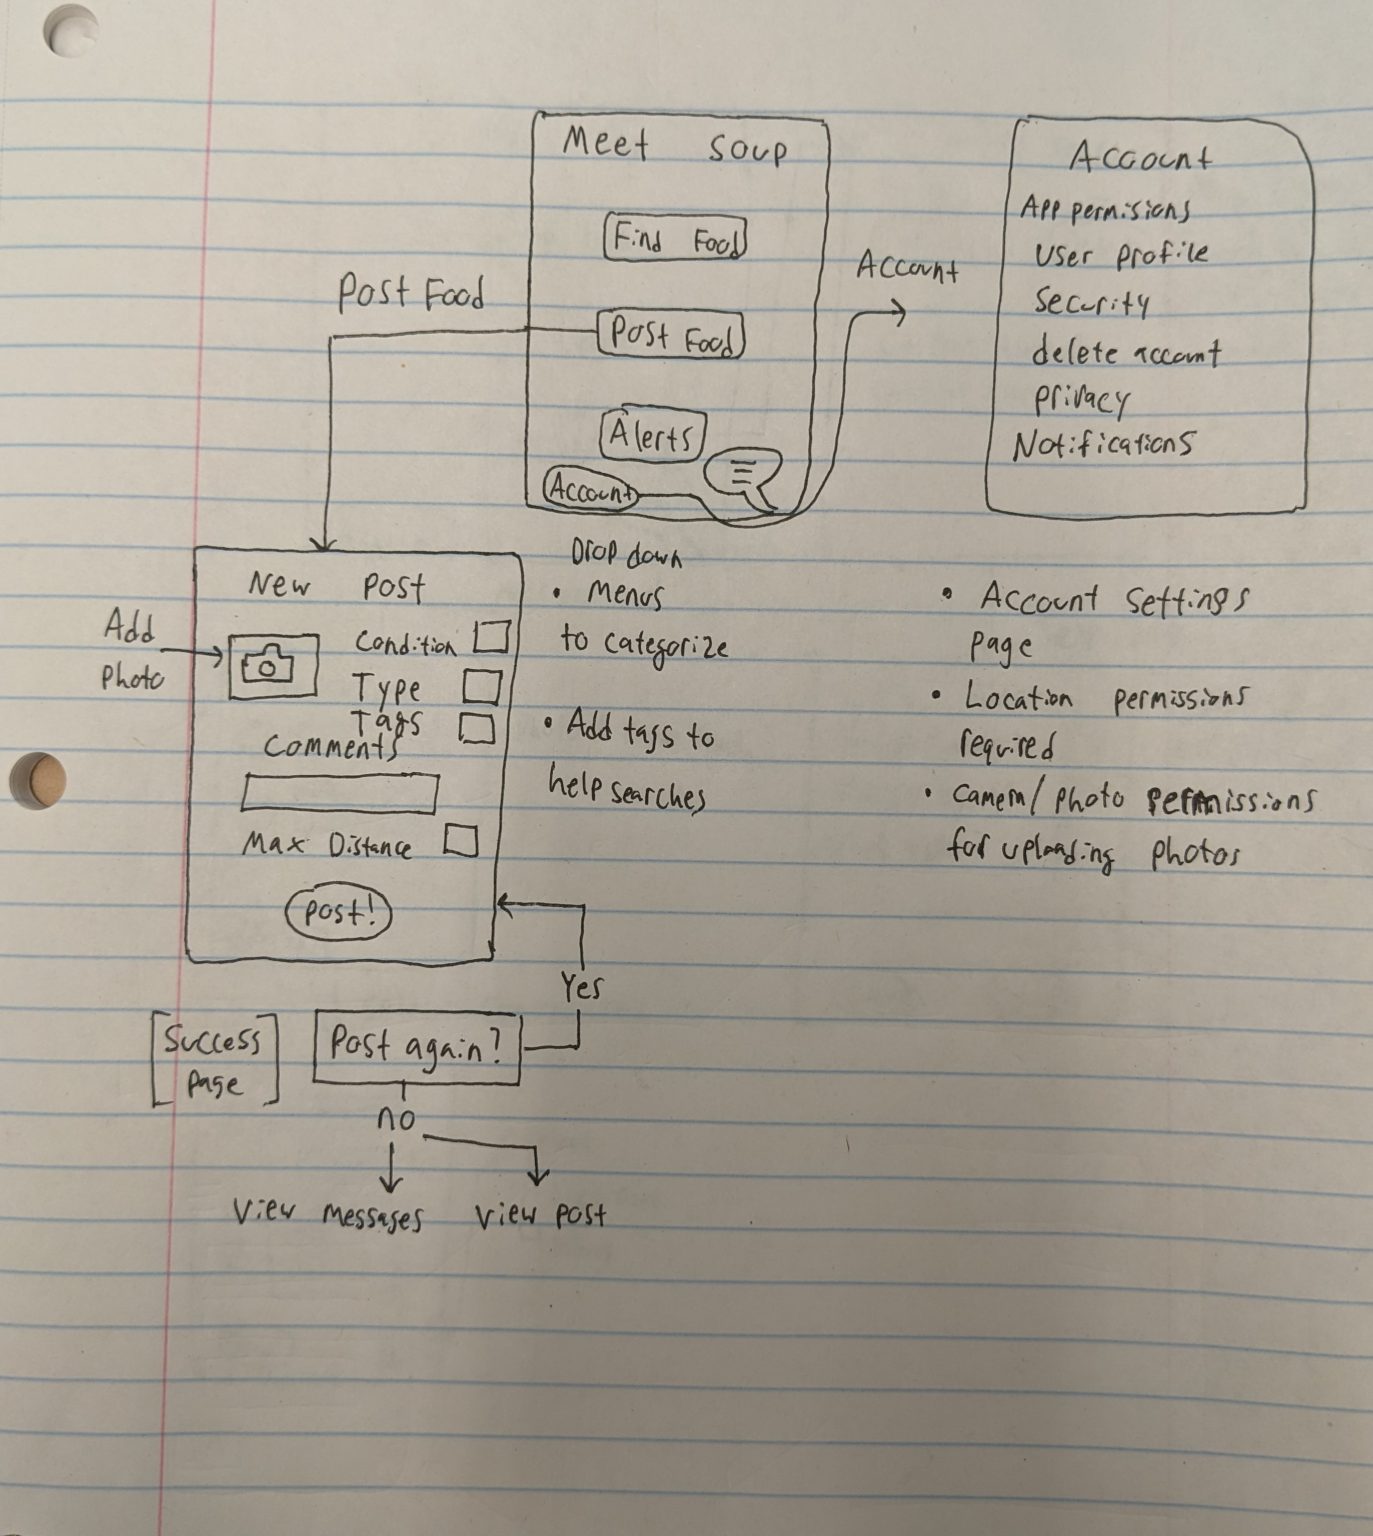 Meet Soup
Find Food
Post Food
Alerts
Account
Post Food
Account
Account
App permisions
User profile
Security
delete account
privacy
Notifications
New Post
Add
Photo
Condition
Type
Tags
Comments
Max Distance
Post!
Drop down
• Menus
to categorize
• Add tags to
help searches
• Account Settings
page
• Location permissions
required
• Camera/Photo Permissions
for uploading photos
Yes
Success
Page
Post again?
no
View Messages
View post